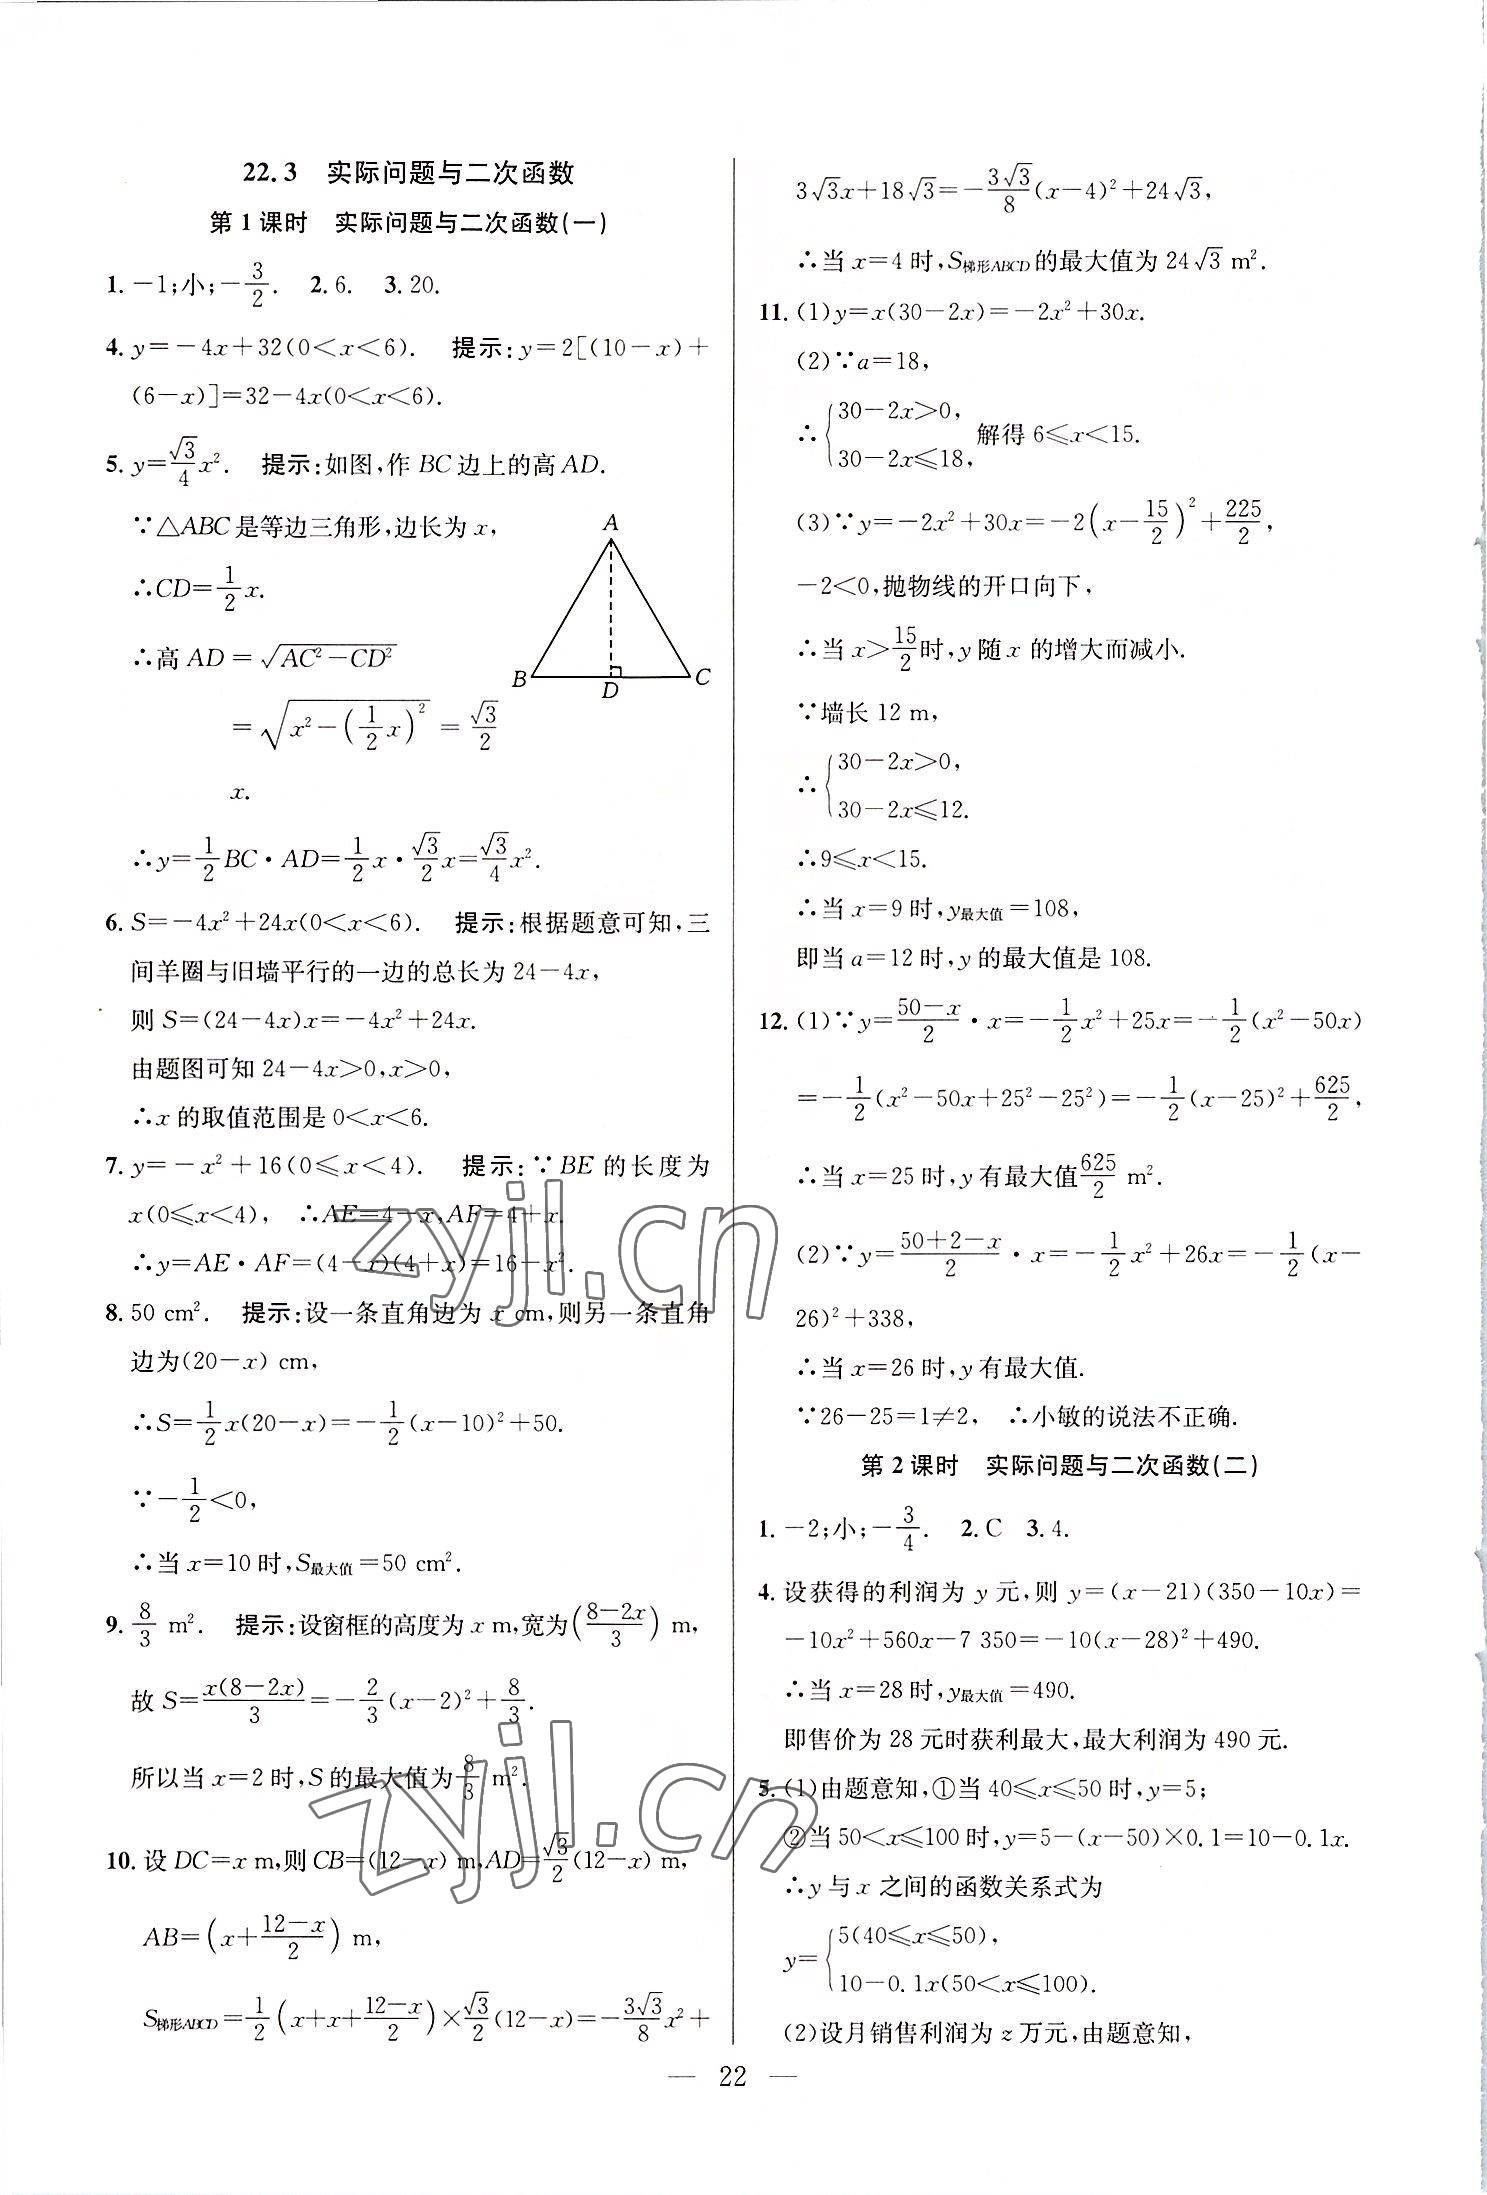 22.3 实际问题与二次函数
第1课时 实际问题与二次函数(一)
1. －1;小;－3/2. 2. 6. 3. 20.
4. y=－4x+32(0<x<6). 提示:y=2[(10－x)+
(6－x)]=32－4x(0<x<6).
5. y=√3/4 x². 提示:如图,作BC边上的高AD.
∵△ABC是等边三角形,边长为x,
∴CD=1/2 x.
∴高AD=√(AC²－CD²)
=√(x²－(1/2 x)²)=√3/2
x.
A
B
D
C
∴y=1/2 BC·AD=1/2 x·√3/2 x=√3/4 x².
6. S=－4x²+24x(0<x<6). 提示:根据题意可知,三
间羊圈与旧墙平行的一边的总长为24－4x,
则S=(24－4x)x=－4x²+24x.
由题图可知24－4x>0,x>0,
∴x的取值范围是0<x<6.
7. y=－x²+16(0≤x<4). 提示:∵BE的长度为
x(0≤x<4), ∴AE=4－x,AF=4+x.
∴y=AE·AF=(4－x)(4+x)=16－x².
8. 50 cm². 提示:设一条直角边为x cm,则另一条直角
边为(20－x) cm,
∴S=1/2 x(20－x)=－1/2(x－10)²+50.
∵－1/2<0,
∴当x=10时,S最大值=50 cm².
9. 8/3 m². 提示:设窗框的高度为x m,宽为((8－2x)/3) m,
故S=x(8－2x)/3=－2/3(x－2)²+8/3.
所以当x=2时,S的最大值为8/3 m².
10. 设DC=x m,则CB=(12－x) m,AD=√3/2(12－x) m,
AB=(x+(12－x)/2) m,
S梯形ABCD=1/2(x+x+(12－x)/2)×√3/2(12－x)=－3√3/8 x²+
3√3x+18√3=－3√3/8(x－4)²+24√3,
∴当x=4时,S梯形ABCD的最大值为24√3 m².
11. (1)y=x(30－2x)=－2x²+30x.
(2)∵a=18,
∴{30－2x>0,
30－2x≤18, 解得6≤x<15.
(3)∵y=－2x²+30x=－2(x－15/2)²+225/2,
－2<0,抛物线的开口向下,
∴当x>15/2时,y随x的增大而减小.
∵墙长12 m,
∴{30－2x>0,
30－2x≤12.
∴9≤x<15.
∴当x=9时,y最大值=108,
即当a=12时,y的最大值是108.
12. (1)∵y=(50－x)/2·x=－1/2 x²+25x=－1/2(x²－50x)
=－1/2(x²－50x+25²－25²)=－1/2(x－25)²+625/2,
∴当x=25时,y有最大值625/2 m².
(2)∵y=(50+2－x)/2·x=－1/2 x²+26x=－1/2(x－
26)²+338,
∴当x=26时,y有最大值.
∵26－25=1≠2, ∴小敏的说法不正确.
第2课时 实际问题与二次函数(二)
1. －2;小;－3/4. 2. C 3. 4.
4. 设获得的利润为y元,则y=(x－21)(350－10x)=
－10x²+560x－7 350=－10(x－28)²+490.
∴当x=28时,y最大值=490.
即售价为28元时获利最大,最大利润为490元.
5. (1)由题意知,①当40≤x≤50时,y=5;
②当50<x≤100时,y=5－(x－50)×0.1=10－0.1x.
∴y与x之间的函数关系式为
y={5(40≤x≤50),
10－0.1x(50<x≤100).
(2)设月销售利润为z万元,由题意知,
— 22 —
zyjl.cn
zyjl.cn